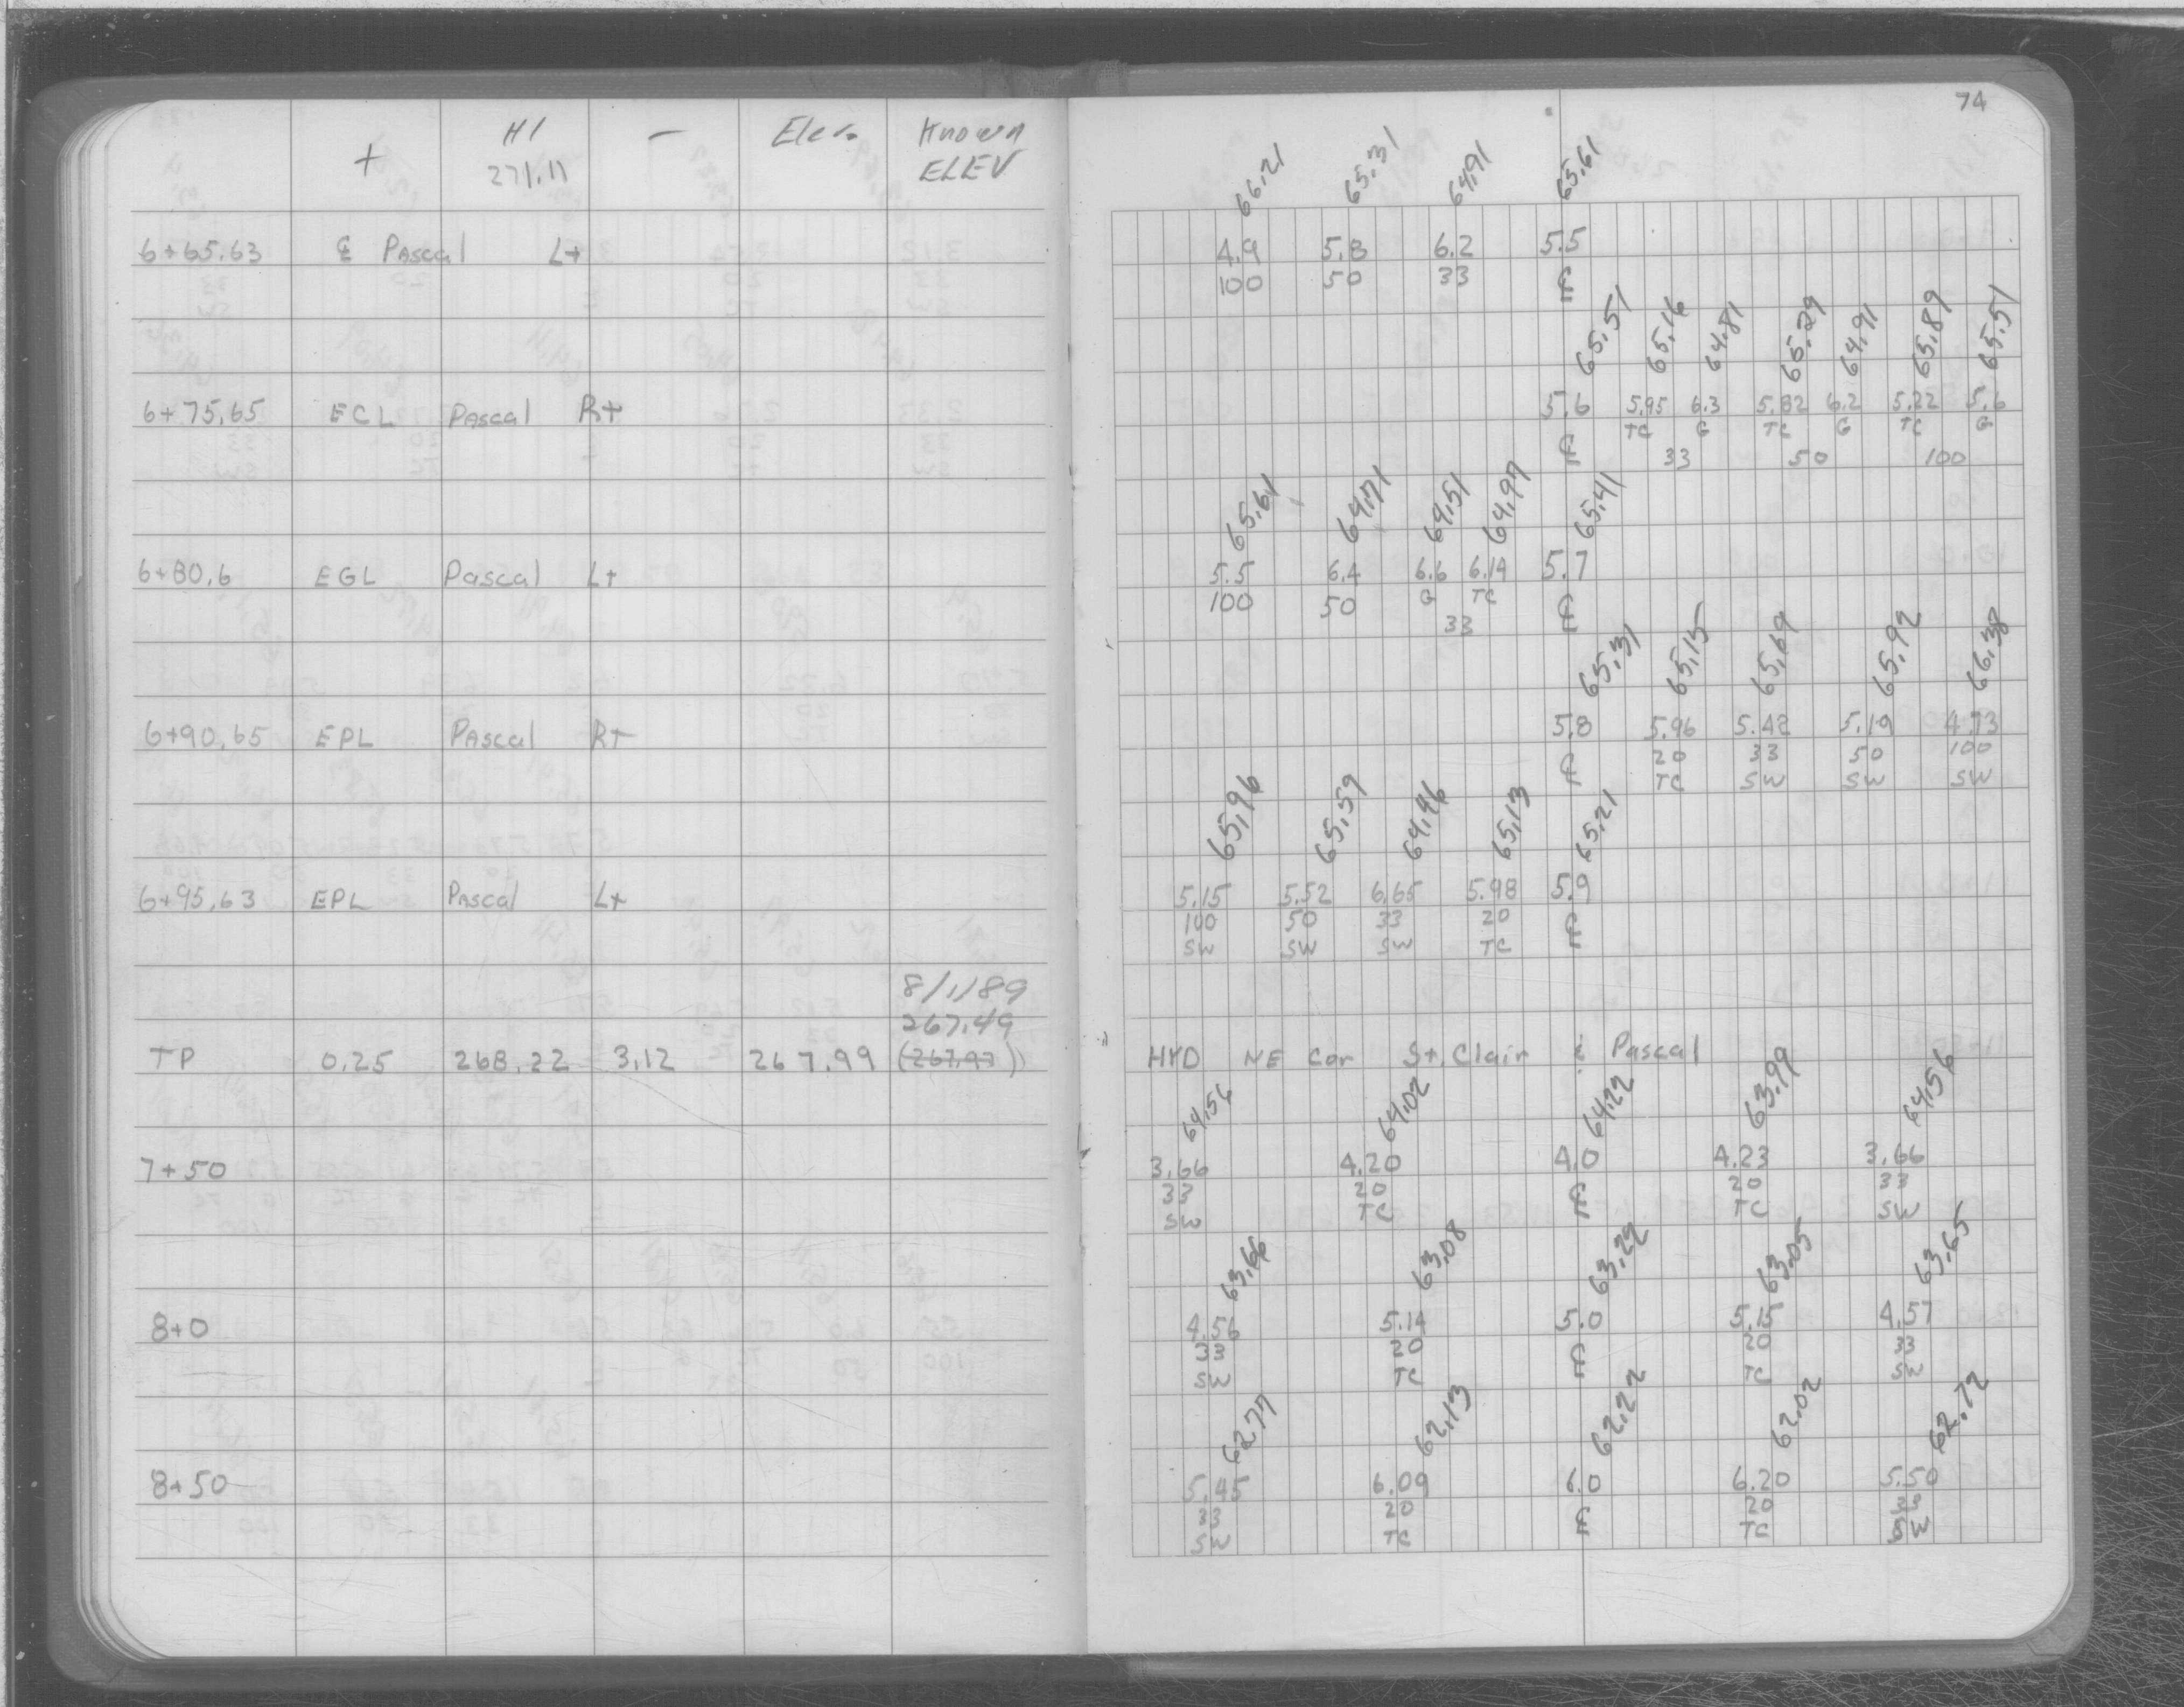 74
+ HI - Elev. Known
271.11 ELEV
66.21 65.31 64.91 65.61
6+65.63 ℄ Pascal Lt 4.9 5.8 6.2 5.5
100 50 33 ℄
65.51 65.16 64.81 65.29 64.91 65.89 65.51
6+75.65 ECL Pascal Rt 5.6 5.95 6.3 5.82 6.2 5.22 5.6
TC G TC G TC G
℄ 33 50 100
65.61 64.71 64.51 64.97 65.41
6+80.6 EGL Pascal Lt 5.5 6.4 6.6 6.14 5.7
100 50 G TC ℄
33
65.31 65.15 65.69 65.92 66.38
6+90.65 EPL Pascal Rt 5.8 5.96 5.42 5.19 4.73
20 33 50 100
℄ TC SW SW SW
65.96 65.59 64.46 65.13 65.21
6+95.63 EPL Pascal Lt 5.15 5.52 6.65 5.98 5.9
100 50 33 20 ℄
SW SW SW TC
8/1/89
267.49
TP 0.25 268.22 3.12 267.99 (267.97) HYD NE Cor St. Clair & Pascal
64.56 64.02 64.22 63.99 64.56
7+50 3.66 4.20 4.0 4.23 3.66
33 20 ℄ 20 33
SW TC TC SW
63.66 63.08 63.22 63.05 63.65
8+0 4.56 5.14 5.0 5.15 4.57
33 20 ℄ 20 33
SW TC TC SW
62.77 62.13 62.22 62.02 62.72
8+50 5.45 6.09 6.0 6.20 5.50
33 20 ℄ 20 33
SW TC TC SW